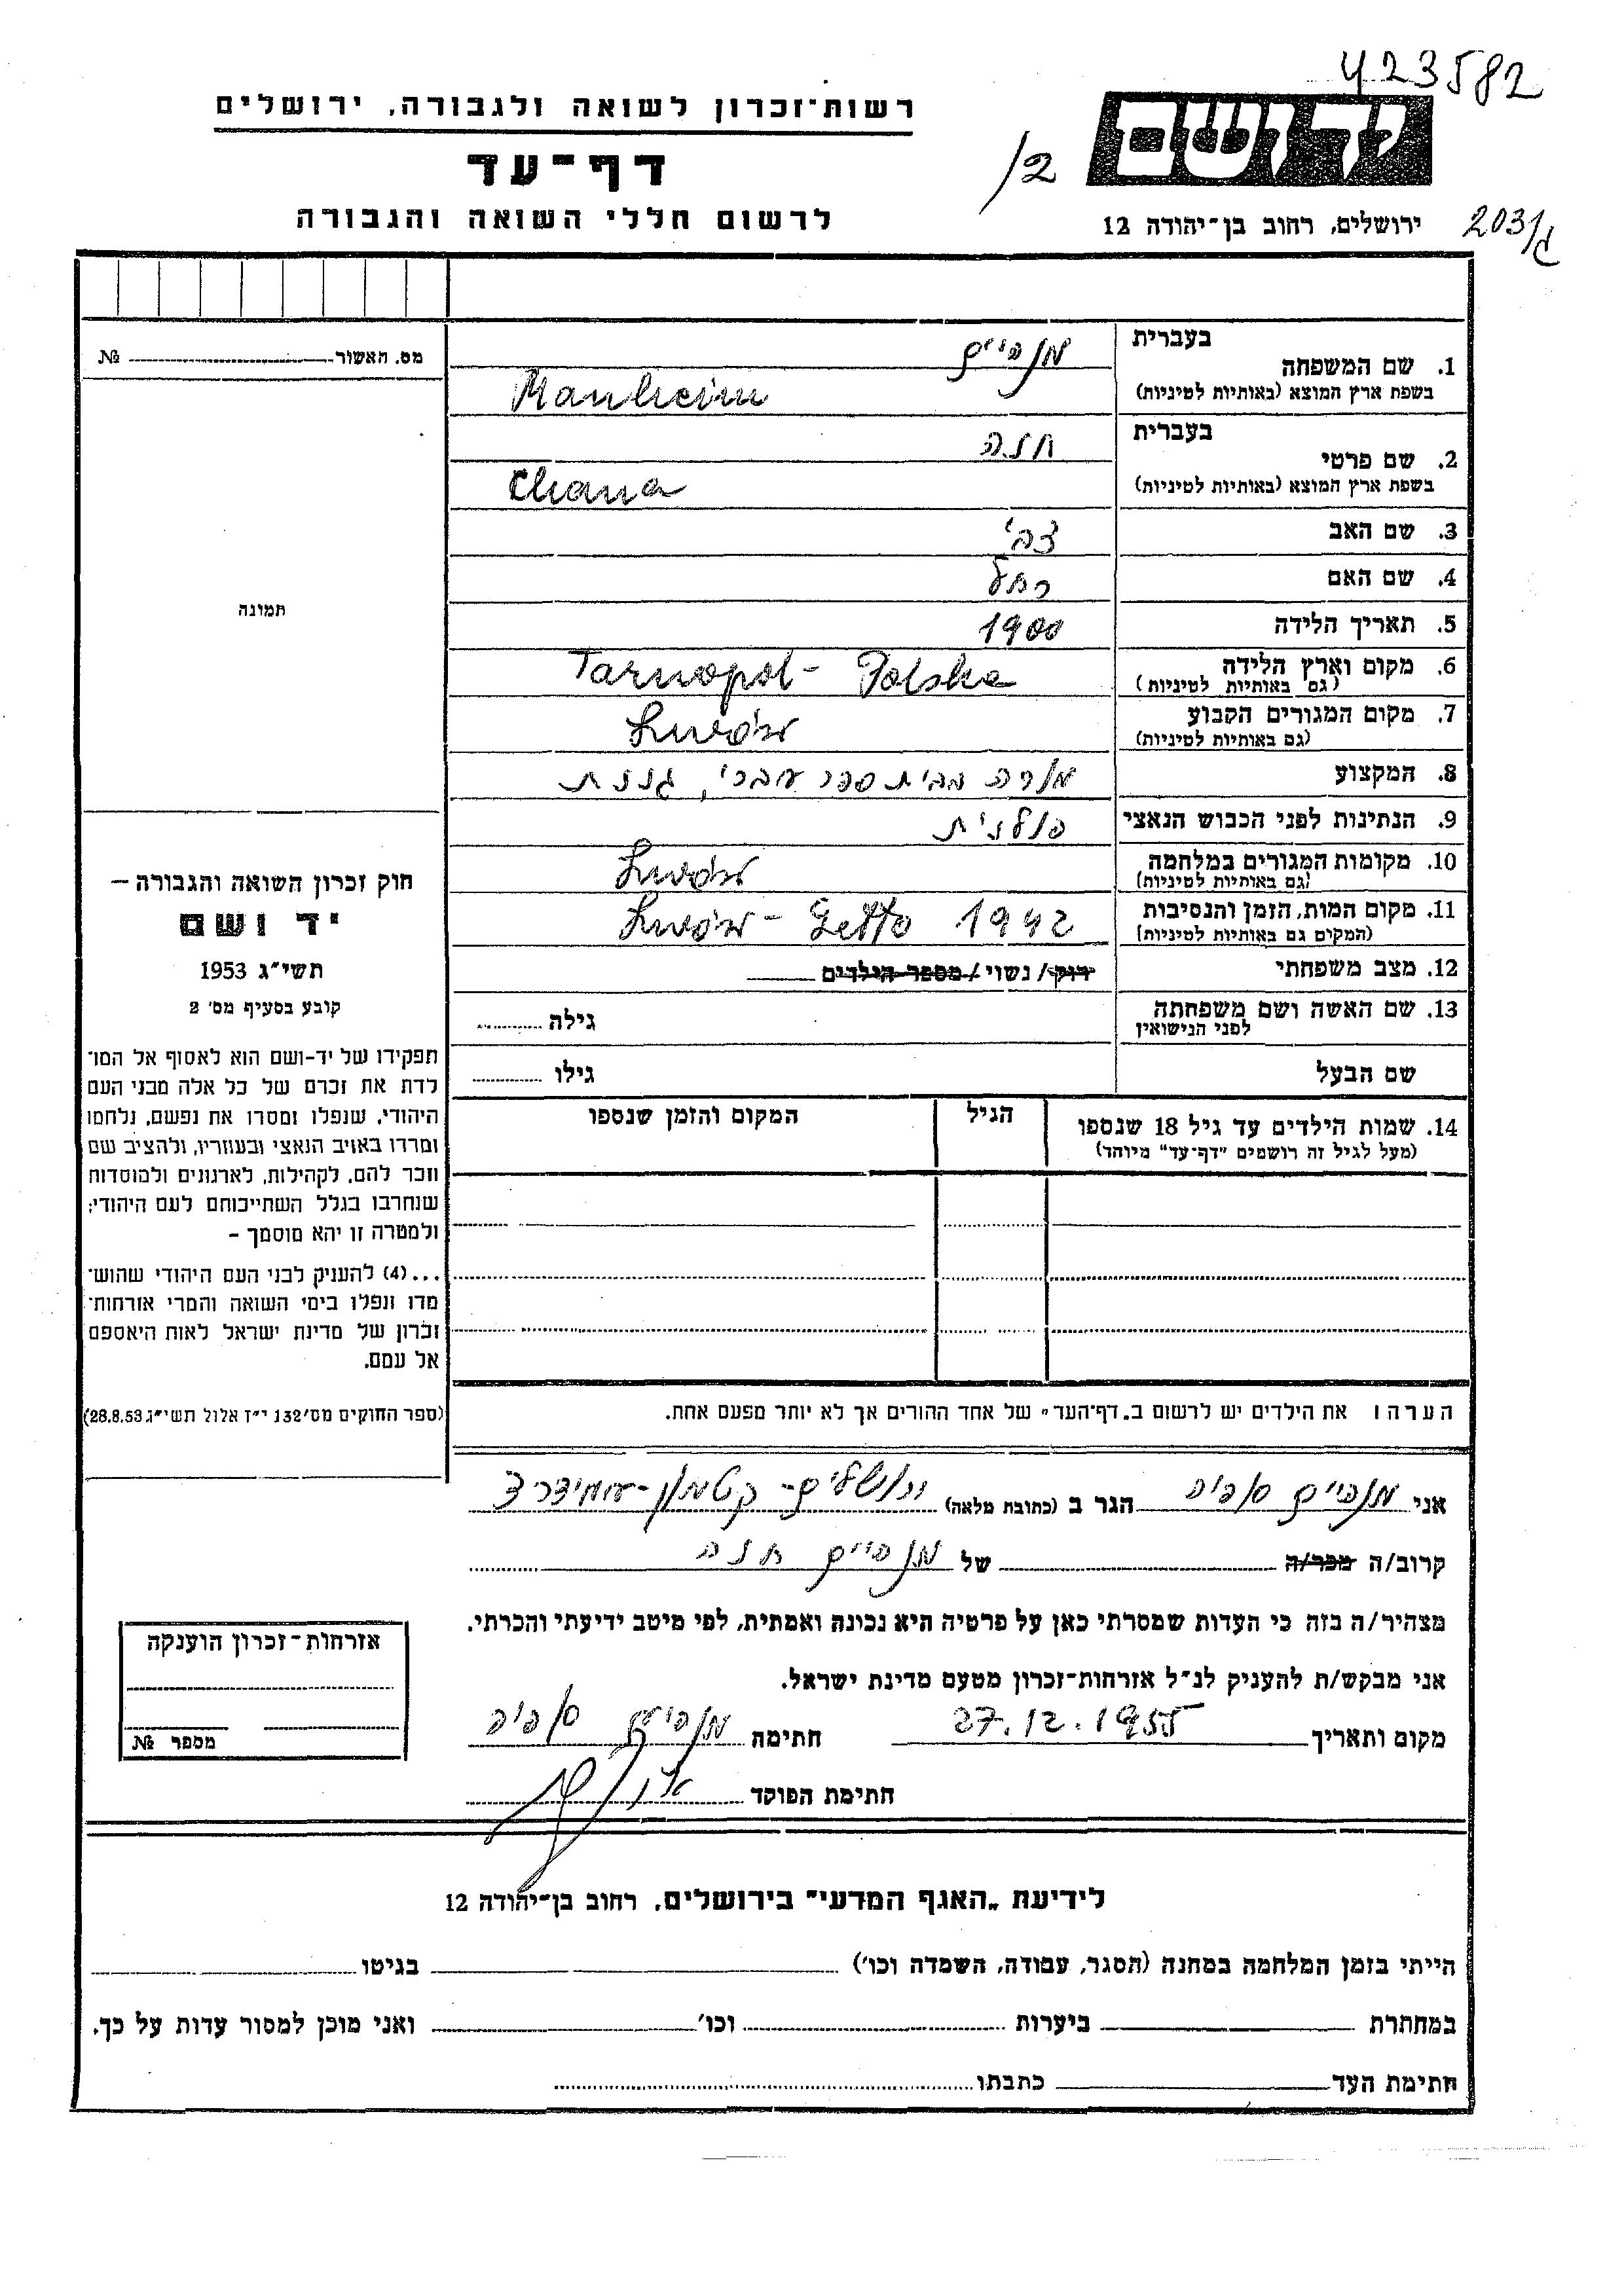 423582
רשות־זכרון לשואה ולגבורה, ירושלים
יד ושם
דף־עד
/2
לרשום חללי השואה והגבורה
ירושלים, רחוב בן־יהודה 12
203/ג
בעברית
מנהיים
1. שם המשפחה
בשפת ארץ המוצא (באותיות לטיניות)
Manheim
בעברית
חנה
2. שם פרטי
בשפת ארץ המוצא (באותיות לטיניות)
Chana
3. שם האב צבי
4. שם האם רחל
5. תאריך הלידה 1900
6. מקום וארץ הלידה
(גם באותיות לטיניות)
Tarnopol - Polska
7. מקום המגורים הקבוע
(גם באותיות לטיניות)
Lwów
8. המקצוע מורה בבית ספר עברי, גננת
9. הנתינות לפני הכבוש הנאצי פולנית
10. מקומות המגורים במלחמה
(גם באותיות לטיניות)
Lwów
11. מקום המות, הזמן והנסיבות
(המקום גם באותיות לטיניות)
Lwów - Getto 1942
12. מצב משפחתי רווק/ נשוי/ מספר הילדים
13. שם האשה ושם משפחתה
לפני הנישואין
גילה
שם הבעל גילו
14. שמות הילדים עד גיל 18 שנספו
(מעל לגיל זה רושמים "דף־עד" מיוחד)
הגיל
המקום והזמן שנספו
הערה: את הילדים יש לרשום ב„דף־העד" של אחד ההורים אך לא יותר מפעם אחת.
מס. האשור №
תמונה
חוק זכרון השואה והגבורה –
יד ושם
תשי"ג 1953
קובע בסעיף מס' 2
תפקידו של יד־ושם הוא לאסוף אל המו־
לדת את זכרם של כל אלה מבני העם
היהודי, שנפלו ומסרו את נפשם, נלחמו
ומרדו באויב הנאצי ובעוזריו, ולהציב שם
וזכר להם, לקהילות, לארגונים ולמוסדות
שנחרבו בגלל השתייכותם לעם היהודי;
ולמטרה זו יהא מוסמך –
...(4) להעניק לבני העם היהודי שהוש־
מדו ונפלו בימי השואה והמרי אזרחות־
זכרון של מדינת ישראל לאות היאספם
אל עמם.
(ספר החוקים מס' 132 י"ז אלול תשי"ג 28.8.53)
אני מנהיים סופיה הגר ב (כתובת מלאה) ירושלים - קטמון - עמידר ד
קרוב/ה מכר/ה של מנהיים חנה
מצהיר/ה בזה כי העדות שמסרתי כאן על פרטיה היא נכונה ואמתית, לפי מיטב ידיעתי והכרתי.
אני מבקש/ת להעניק לנ"ל אזרחות־זכרון מטעם מדינת ישראל.
מקום ותאריך 27.12.1955 חתימה מנהיים סופיה
חתימת הפוקד
אזרחות־זכרון הוענקה
מספר №
לידיעת „האגף המדעי" בירושלים, רחוב בן־יהודה 12
הייתי בזמן המלחמה במחנה (הסגר, עבודה, השמדה וכו') בגיטו
במחתרת ביערות וכו' ואני מוכן למסור עדות על כך.
חתימת העד כתבתו